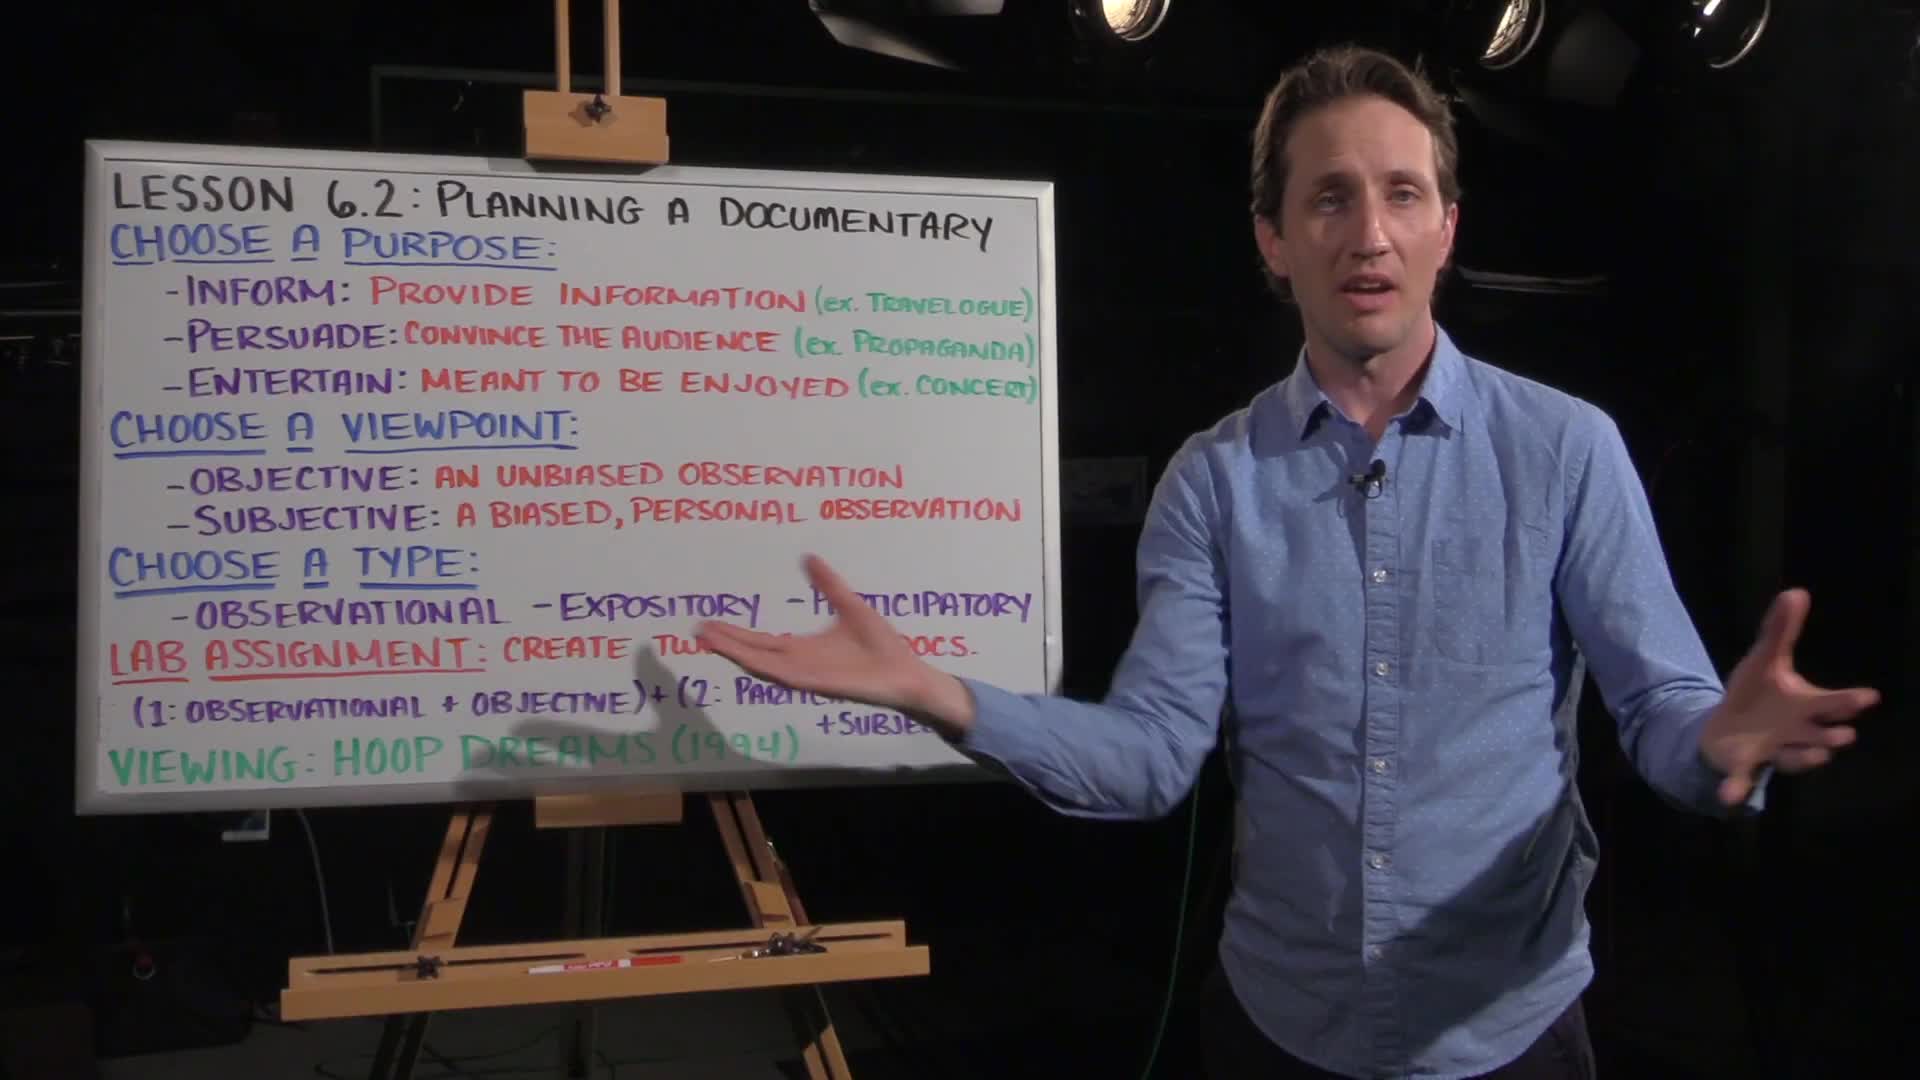 LESSON 6.2: PLANNING A DOCUMENTARY
CHOOSE A PURPOSE:
-INFORM: PROVIDE INFORMATION (ex. TRAVELOGUE)
-PERSUADE: CONVINCE THE AUDIENCE (ex. PROPAGANDA)
-ENTERTAIN: MEANT TO BE ENJOYED (ex. CONCERT)
CHOOSE A VIEWPOINT:
-OBJECTIVE: AN UNBIASED OBSERVATION
-SUBJECTIVE: A BIASED, PERSONAL OBSERVATION
CHOOSE A TYPE:
-OBSERVATIONAL -EXPOSITORY -PARTICIPATORY
LAB ASSIGNMENT: CREATE DOCS.
(1: OBSERVATIONAL + OBJECTIVE) + (2:
+
VIEWING: HOOP DREAMS (1994)